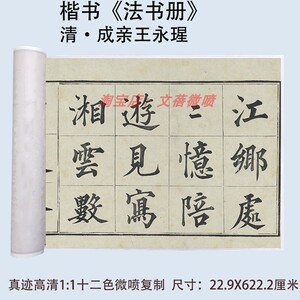 楷书《法书册》
清·成亲王永瑆
淘宝店：文蓓微喷
江鄉處
〻憶陪
遊見寫
湘雲數
真迹高清1:1十二色微喷复制 尺寸：22.9X622.2厘米